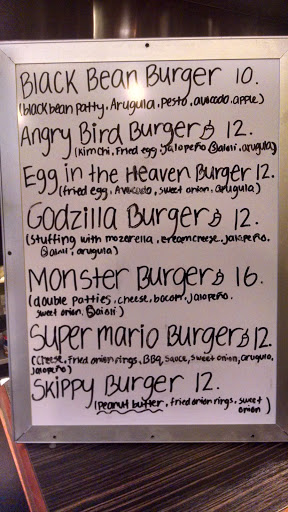 Black Bean Burger 10.
(black bean patty, Arugula, Pesto, avocado, apple)
Angry Bird Burger 12.
(kimchi, fried egg, Jalapeño aioli, arugula)
Egg in the Heaven Burger 12.
(fried egg, Avocado, sweet onion, arugula)
Godzilla Burger 12.
(stuffing with mozerella, creamcheese, jalapeño,
aioli, arugula)
Monster Burger 16.
(double patties, cheese, bacon, jalapeño,
sweet onion, aioli)
Super mario Burger 12.
(cheese, fried onion rings, BBQ, sauce, sweet onion, arugula,
jalapeño)
Skippy Burger 12.
(Peanut butter, fried onion rings, sweet
onion)